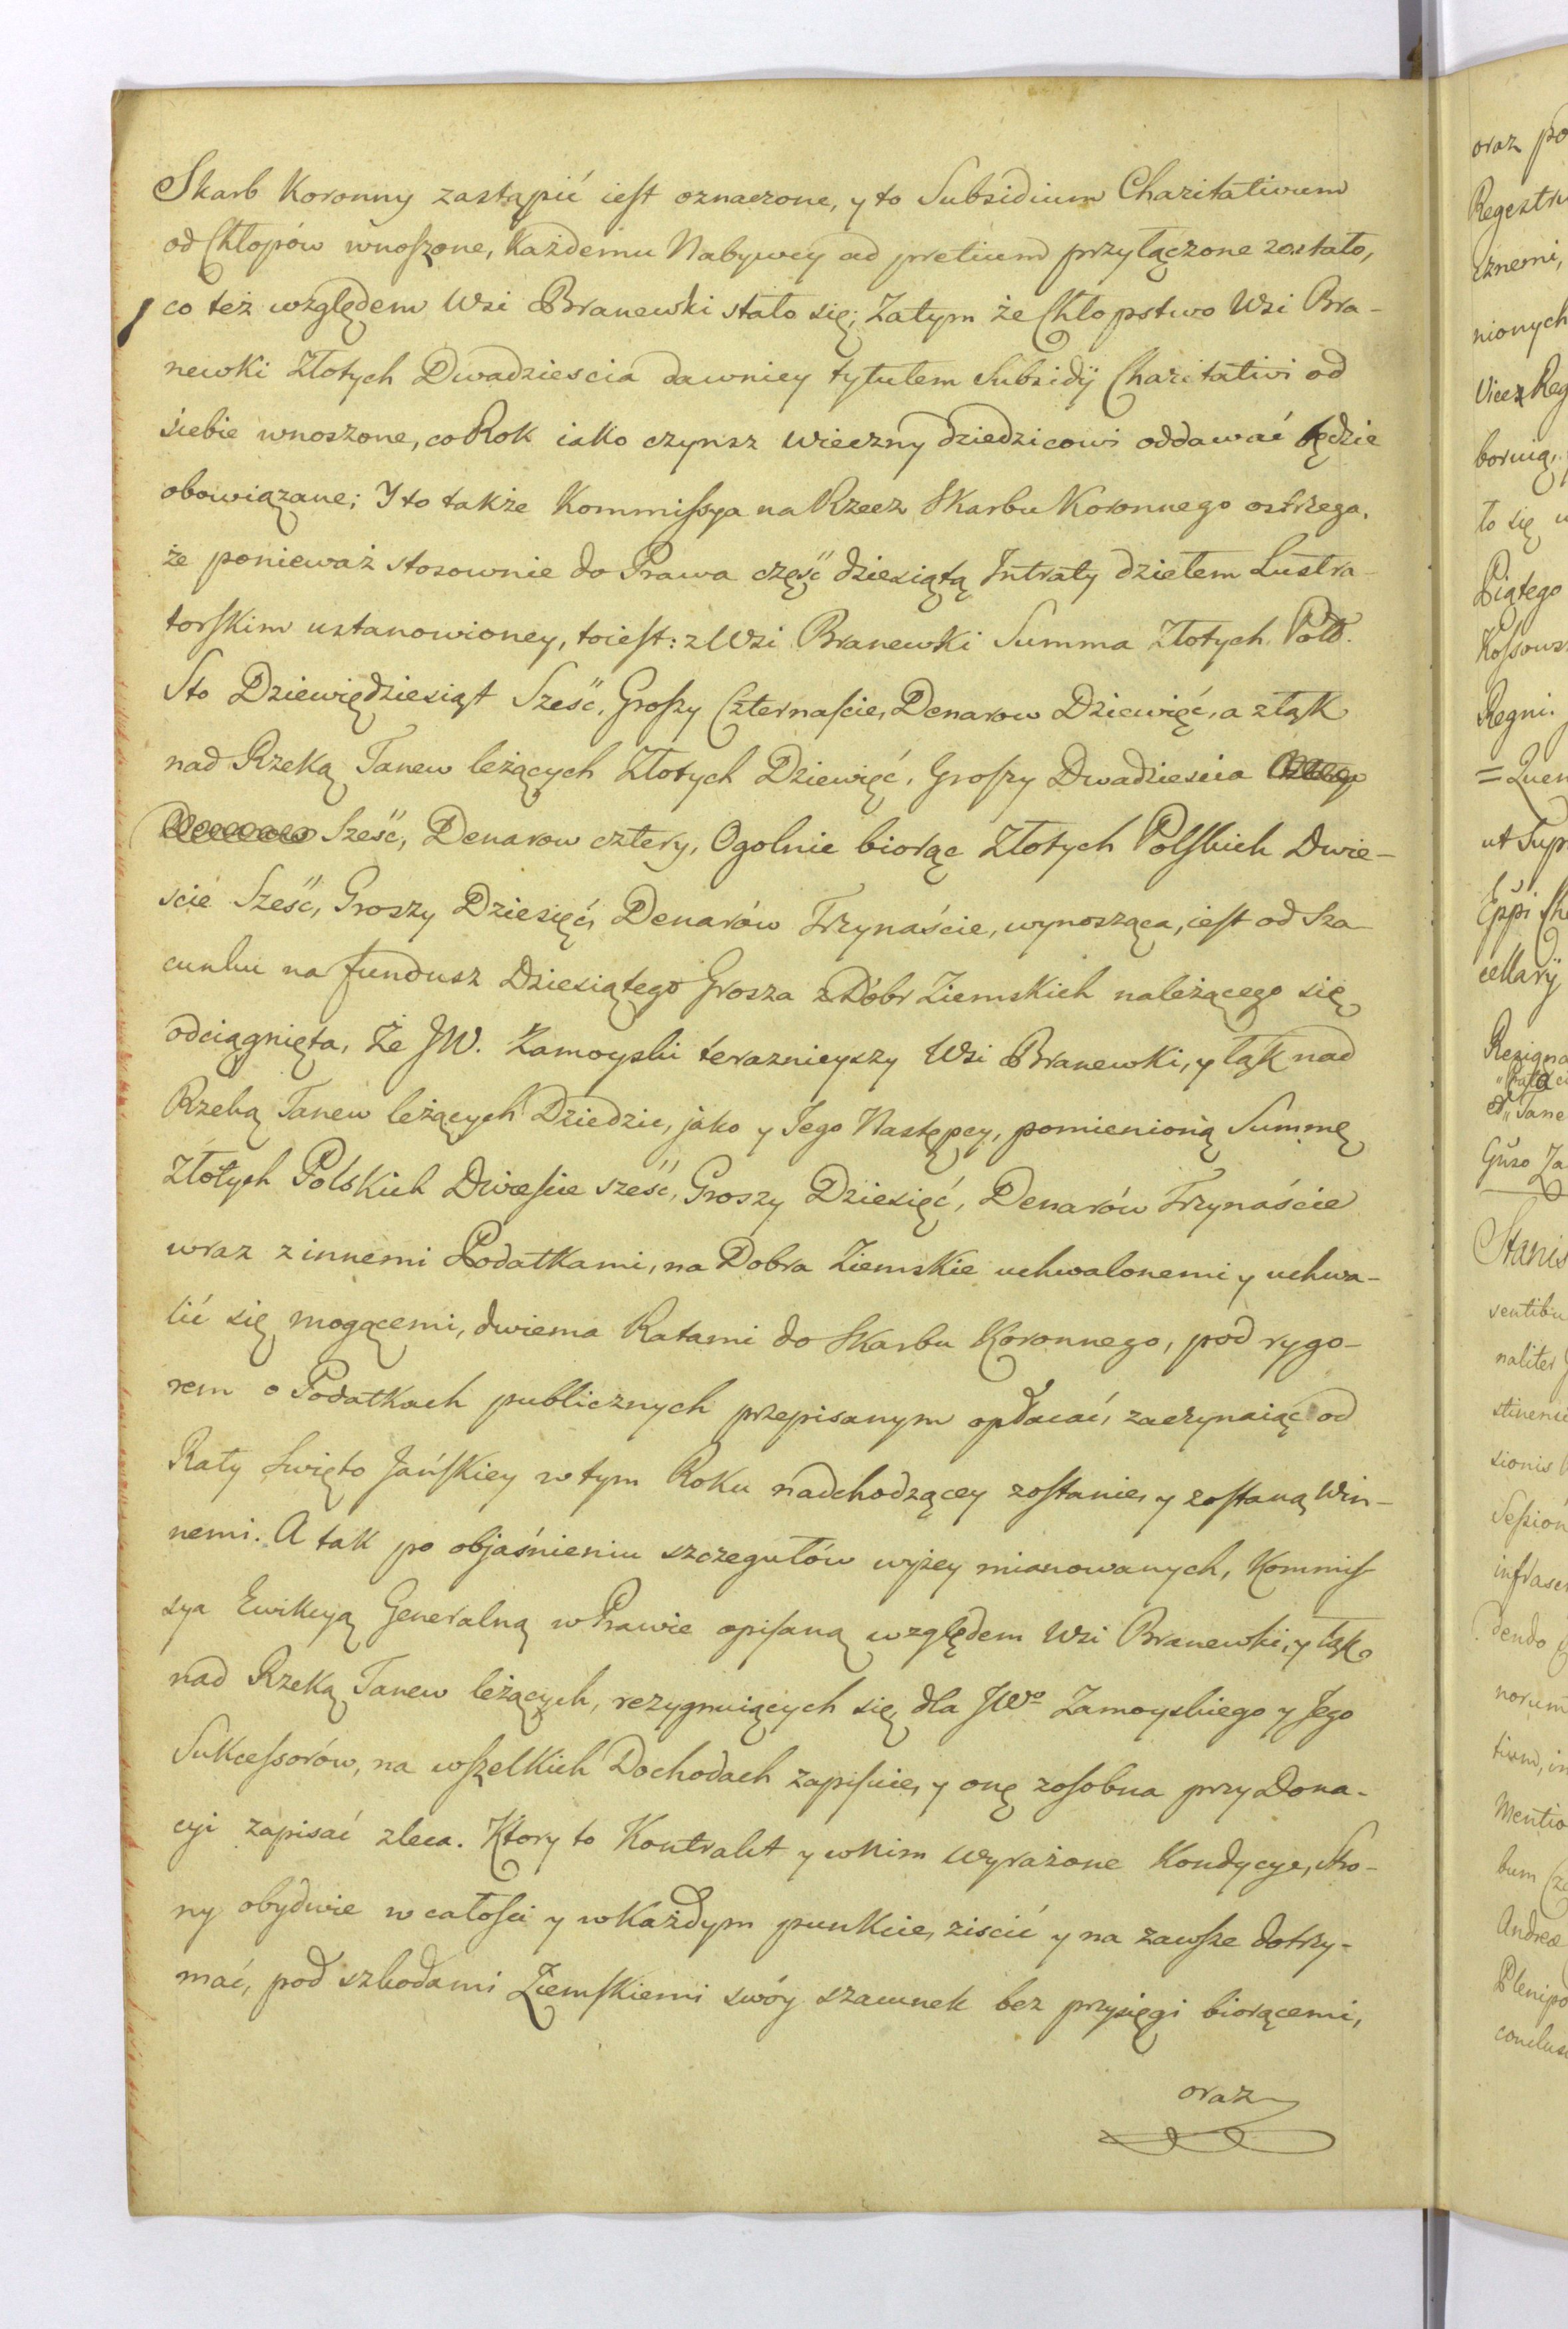 Skarb Koronny zastąpić iest oznaczone, y to Subsidium Charitativum
od Chłopów wnoszone, Każdemu Nabywcy ad pretium przyłączone zostało,
co też względem Wsi Branewki stało się; Zatym że Chłopstwo Wsi Bra-
newki Złotych Dwadziescia dawniey tytułem Subsidÿ Charitativi od
siebie wnoszone, co Rok iako czynsz wieczny dziedzicowi oddawać będzie
obowiązane; Y to także Kommissya na Rzecz Skarbu Koronnego ostrzega,
że ponieważ stosownie do Prawa część dziesiątą Intraty dziełem Lustra-
torskim ustanowioney, toiest: z Wsi Branewki Summa Złotych Pols.
Sto Dziewiędziesiąt Sześć, Groszy Czternaście, Denarow Dziewięć, a złąk
nad Rzeką Tanew leżących Złotych Dziewięć, Groszy Dwadziescia
Sześć, Denarow cztery, Ogolnie biorąc Złotych Polskich Dwie-
scie Sześć, Groszy Dziesięć, Denarów Trzynaście, wynosząca, iest od Sza-
cunku na fundusz Dziesiątego Grosza z Dóbr Ziemskich należącego się
odciągnięta, Że JW. Zamoyski teraznieyszy Wsi Branewki, y łąk nad
Rzeką Tanew leżących Dziedzic, jako y Jego Następcy, pomienioną Summę
Złotych Polskich Dwieście sześć, Groszy Dziesięć, Denarów Trzynaście
wraz z innemi Podatkami, na Dobra Ziemskie uchwalonemi y uchwa-
lić się mogącemi, dwiema Ratami do Skarbu Koronnego, pod rygo-
rem o Podatkach publicznych przepisanym opłacać, zaczynaiąc od
Raty Swięto Jańskiey w tym Roku nadchodzącey zostanie, y zostaną win-
nemi. A tak po objaśnieniu szczegułów wyżey mianowanych, Kommis-
sya Ewikcyą Generalną w Prawie opisaną względem Wsi Branewki, y łąk
nad Rzeką Tanew leżących, rezygnuiących się dla JWo Zamoyskiego y Jego
Sukcessorów, na wszelkich Dochodach zapisuie, y onę zosobna przy Dona-
cyi zapisać zleca. Ktory to Kontrakt y w nim wyrażone Kondycye, Stro-
ny obydwie w całości y w każdym punkcie, ziscić y na zawsze dotrzy-
mać, pod szkodami Ziemskiemi swóy szacunek bez przysięgi biorącemi,
oraz